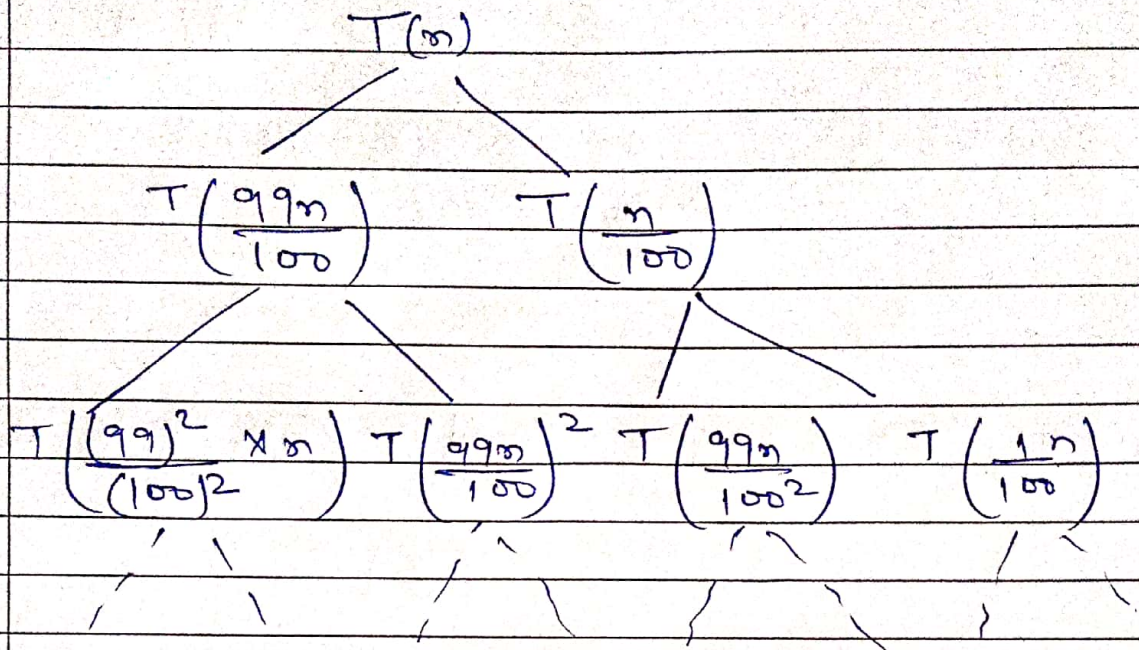 T(n)
T(99n/100) T(n/100)
T((99)²/(100)² × n) T(99n/100)² T(99n/100²) T(1n/100)